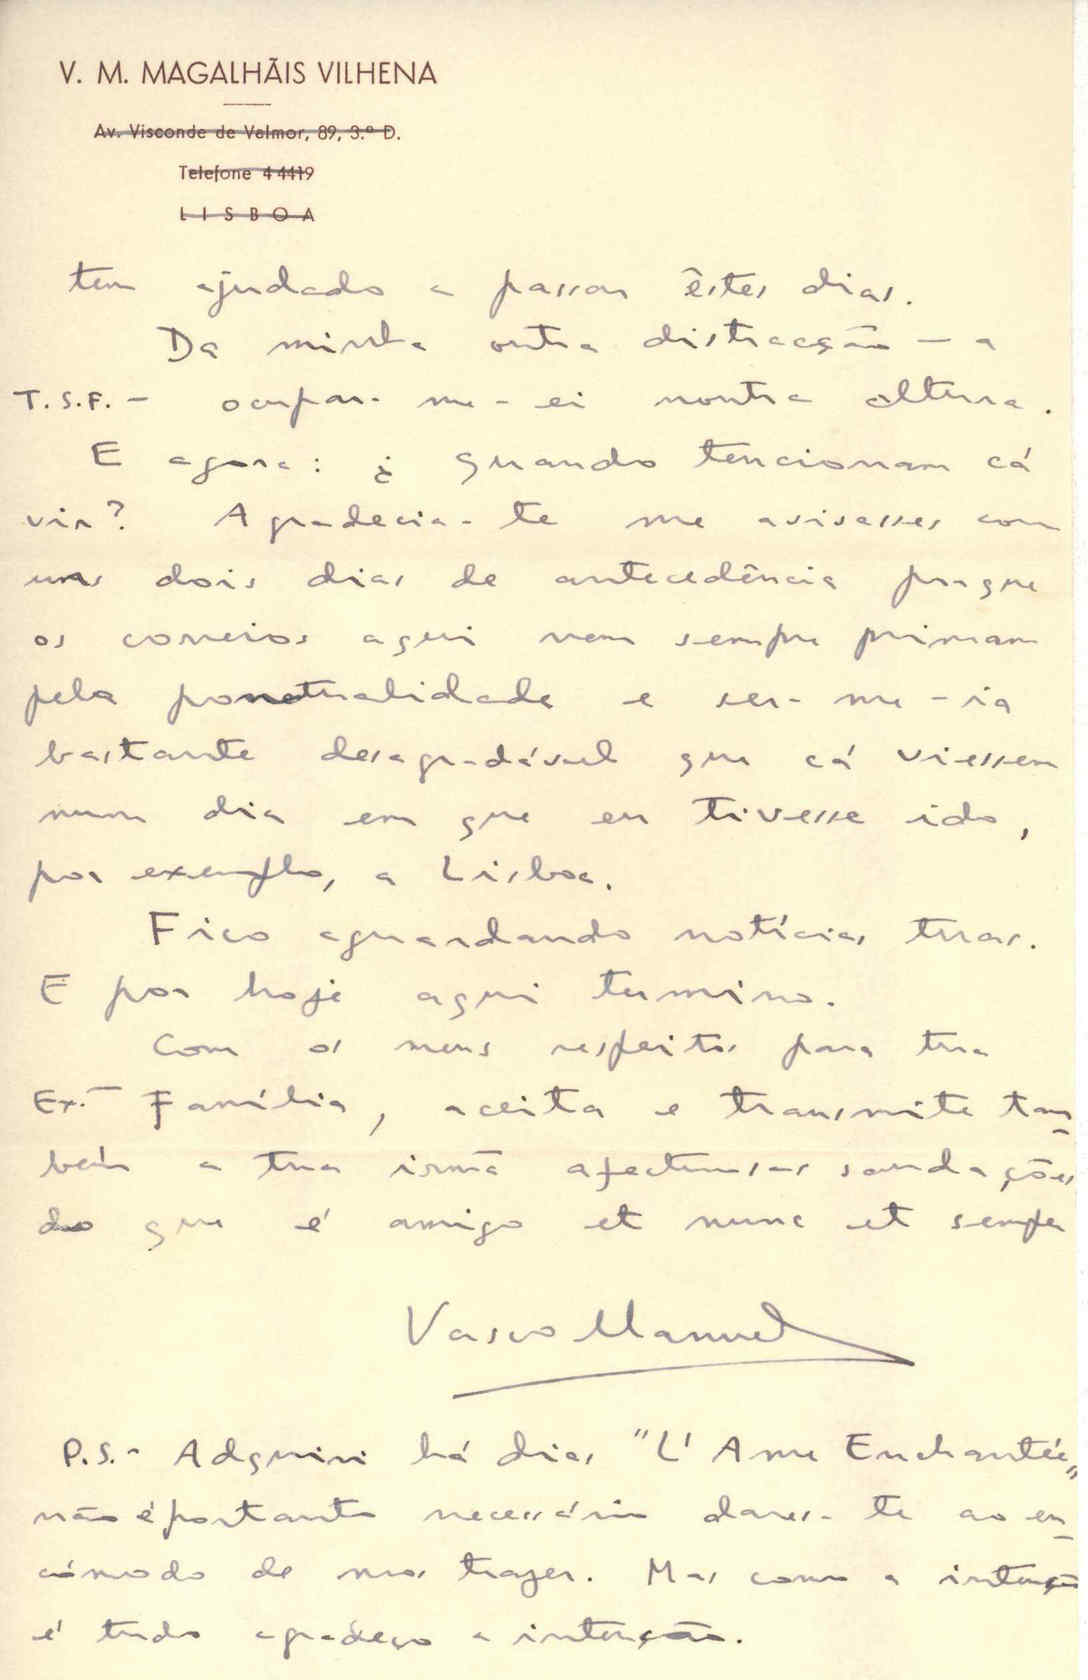 V. M. MAGALHÃIS VILHENA
Av. Visconde de Valmor, 89, 3.º D.
Telefone 4 4419
LISBOA
tem ajudado a passar êstes dias.
Da minha outra distracção — a
T.S.F. — ocupar-me-ei noutra altura.
E agora: ¿ quando tencionam cá
vir? Agradecia-te me avisasses com
uns dois dias de antecedência porque
os correios aqui nem sempre primam
pela pontualidade e ser-me-ia
bastante desagradável que cá viessem
num dia em que eu tivesse ido,
por exemplo, a Lisboa.
Fico aguardando notícias tuas.
E por hoje aqui termino.
Com os meus respeitos para tua
Ex.ma Família, aceita e transmite tam-
bém a tua irmã afectuosas saudações
do que é amigo et nunc et semper
Vasco Manuel
P.S.- Adquiri há dias "L'Ame Enchantée"
não é portanto necessário dares-te ao en-
cómodo de mos trazer. Mas como a intenção
é tudo agradeço a intenção.